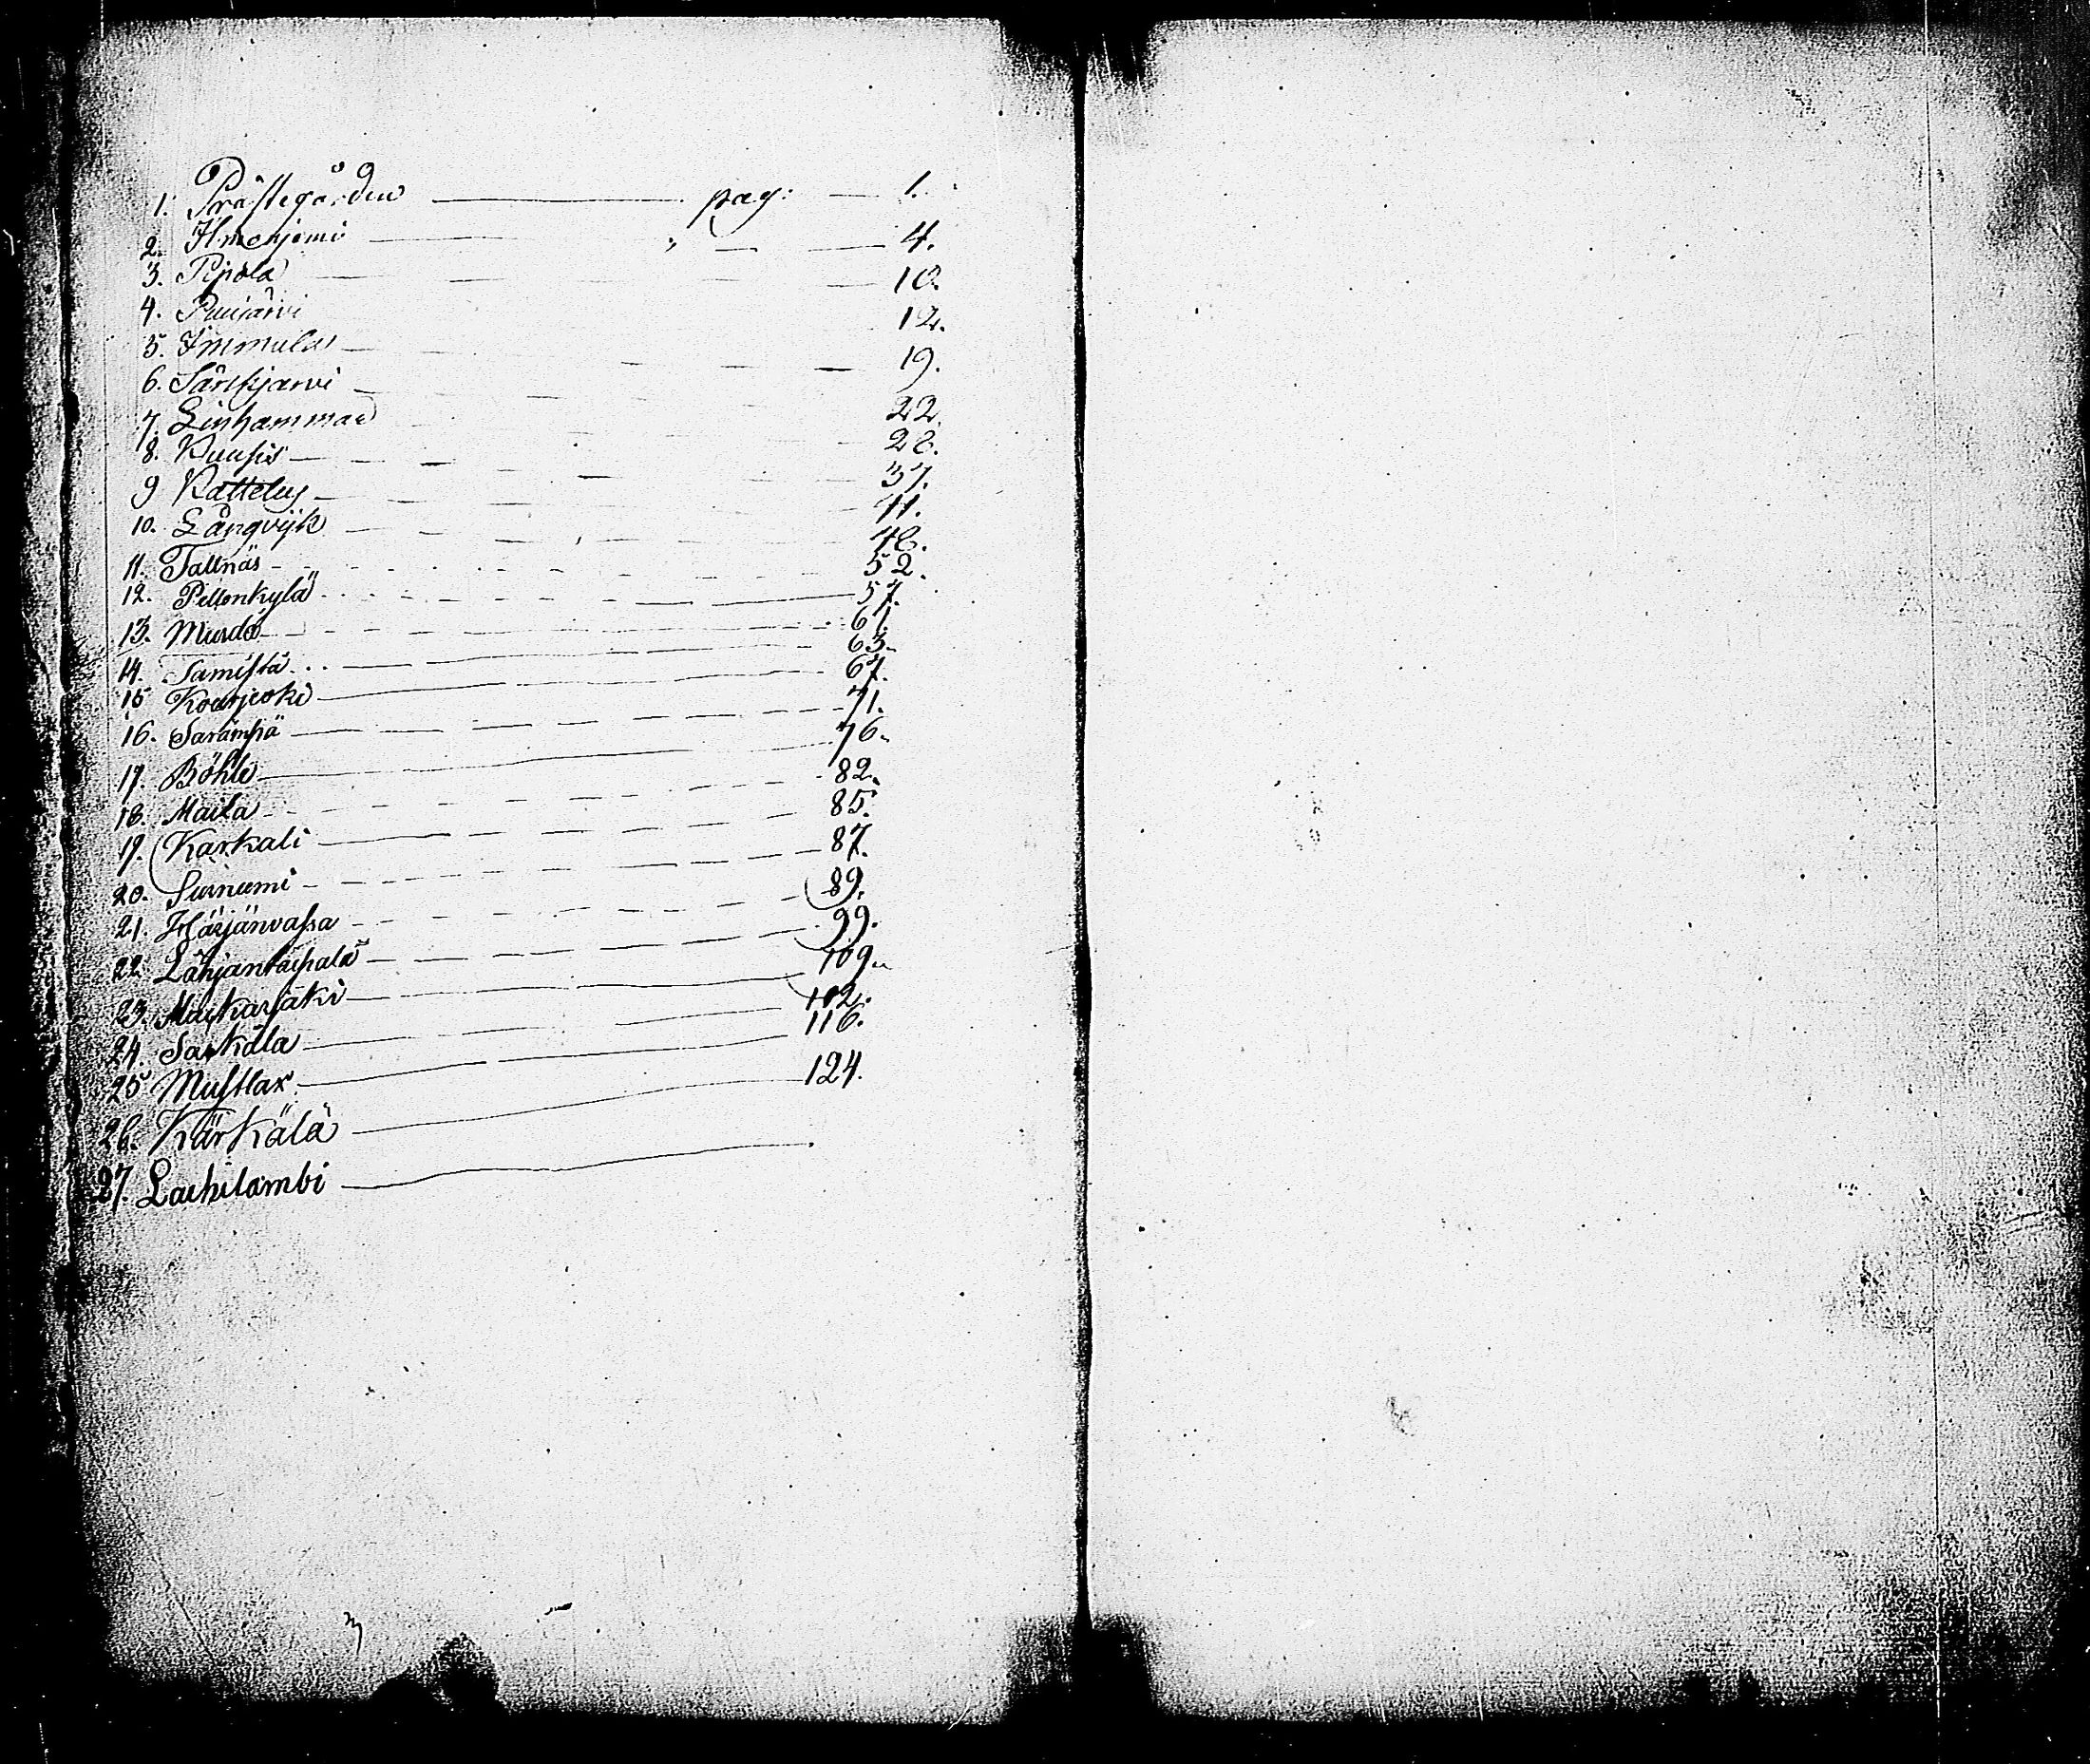 1. Prästegården pag: 1.
2. Ilmonjemi " 4.
3. Pipola 10.
4. Puujärvi 12.
5. Immula 19.
6. Särkjärvi 22.
7. Linhammar 28.
8. Kuusis 37.
9 Kattelus 41.
10. Långvijk 48.
11. Tallnäs 52.
12. Pellonkylä 57.
13. Murdo 61.
14. Samista 63.
15 Kourjoki 67.
16. Saråmpä 71.
17. Böhle 76.
18. Maila 82.
19. Karkali 85.
20. Suiniemi 87.
21. Härjänvassa 89.
22. Låhjantaipale 99.
23. Maikarjäki 109.
24. Sarkola 112.
25 Mustlax 116.
26. Kärkälä 124.
27. Laihilambi